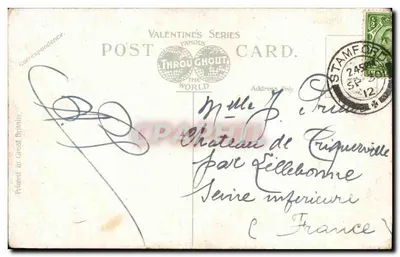 VALENTINE'S SERIES
FAMOUS
POST CARD.
THROUGHOUT
THE
WORLD
Correspondence.
Address Only
Printed in Great Britain
STAMFORD
12
Mlle J
Château de Triquerville
par Lillebonne
Seine inférieure
(France)